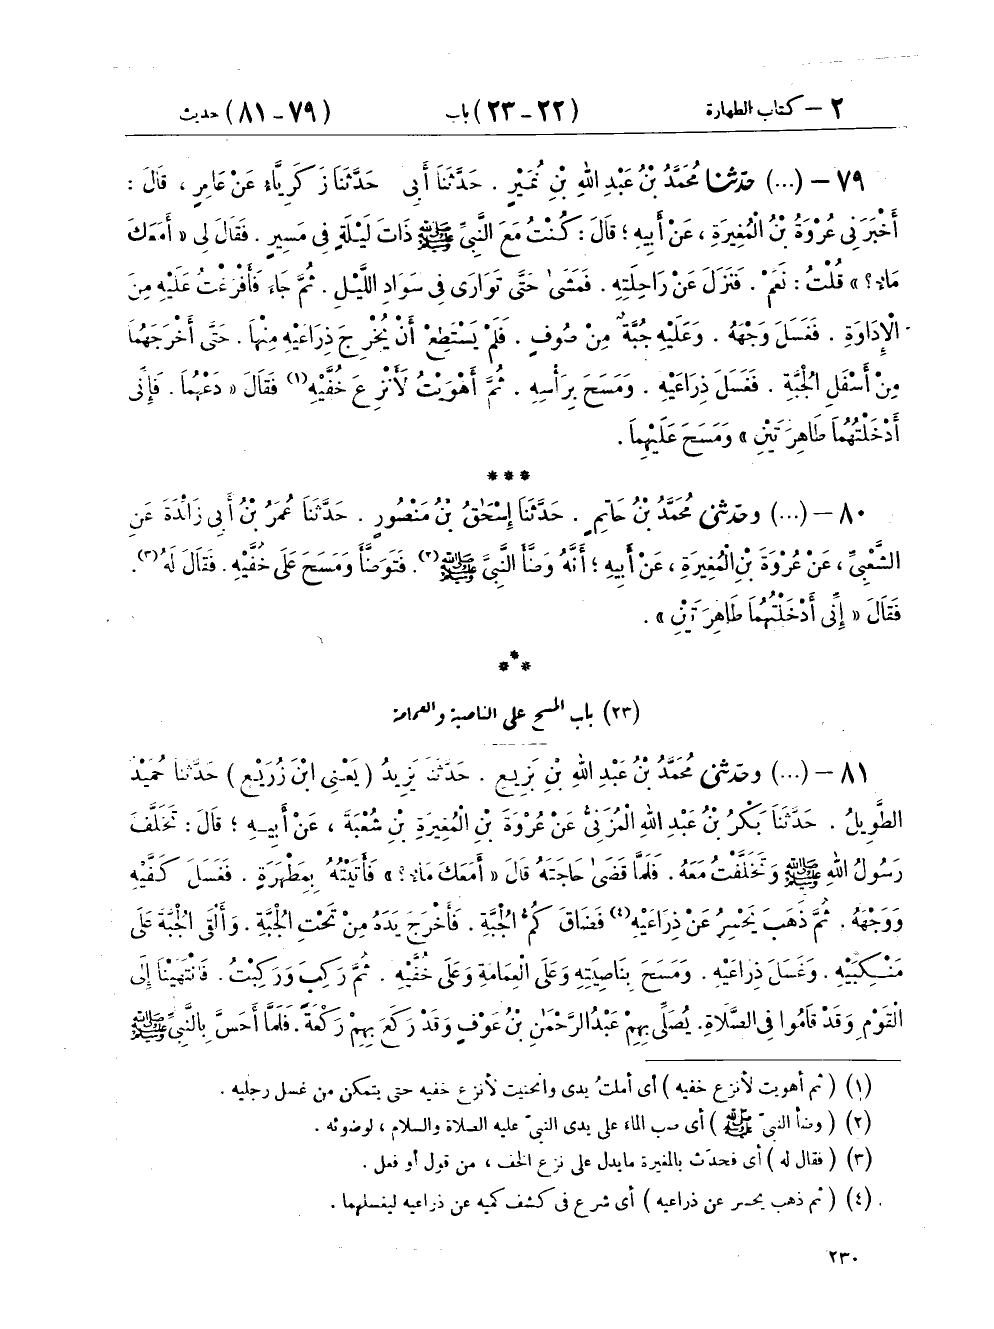 ٢ – كتاب الطهارة (٢٢ - ٢٣) باب (٧٩ - ٨١) حديث
٧٩ – (...) حَدَّثَنَا مُحَمَّدُ بْنُ عَبْدِ اللهِ بْنِ نُمَيْرٍ . حَدَّثَنَا أَبِي حَدَّثَنَا زَكَرِيَّاءُ عَنْ عَامِرٍ ، قَالَ :
أَخْبَرَنِي عُرْوَةُ بْنُ الْمُغِيرَةِ ، عَنْ أَبِيهِ ؛ قَالَ : كُنْتُ مَعَ النَّبِيِّ ﷺ ذَاتَ لَيْلَةٍ فِي مَسِيرٍ . فَقَالَ لِي « أَمَعَكَ
مَاءٌ ؟ » قُلْتُ : نَعَمْ . فَنَزَلَ عَنْ رَاحِلَتِهِ . فَمَشَىٰ حَتَّى تَوَارَى فِي سَوَادِ اللَّيْلِ . ثُمَّ جَاءَ فَأَفْرَغْتُ عَلَيْهِ مِنَ
الْإِدَاوَةِ . فَغَسَلَ وَجْهَهُ . وَعَلَيْهِ جُبَّةٌ مِنْ صُوفٍ . فَلَمْ يَسْتَطِعْ أَنْ يُخْرِجَ ذِرَاعَيْهِ مِنْهَا . حَتَّى أَخْرَجَهُمَا
مِنْ أَسْفَلِ الْجُبَّةِ . فَغَسَلَ ذِرَاعَيْهِ . وَمَسَحَ بِرَأْسِهِ . ثُمَّ أَهْوَيْتُ لِأَنْزِعَ خُفَّيْهِ (١) فَقَالَ « دَعْهُمَا . فَإِنِّي
أَدْخَلْتُهُمَا طَاهِرَتَيْنِ » وَمَسَحَ عَلَيْهِمَا .
***
٨٠ – (...) وحَدَّثَنِي مُحَمَّدُ بْنُ حَاتِمٍ . حَدَّثَنَا إِسْحَٰقُ بْنُ مَنْصُورٍ . حَدَّثَنَا عُمَرُ بْنُ أَبِي زَائِدَةَ عَنِ
الشَّعْبِيِّ ، عَنْ عُرْوَةَ بْنِ الْمُغِيرَةِ ، عَنْ أَبِيهِ ؛ أَنَّهُ وَضَّأَ النَّبِيَّ ﷺ (٢) . فَتَوَضَّأَ وَمَسَحَ عَلَى خُفَّيْهِ . فَقَالَ لَهُ (٣) .
فَقَالَ « إِنِّي أَدْخَلْتُهُمَا طَاهِرَتَيْنِ » .
***
(٢٣) باب المسح على الناصية والعمامة
٨١ – (...) وحَدَّثَنِي مُحَمَّدُ بْنُ عَبْدِ اللهِ بْنِ بَزِيعٍ . حَدَّثَنَا يَزِيدُ ( يَعْنِي ابْنَ زُرَيْعٍ ) حَدَّثَنَا حُمَيْدٌ
الطَّوِيلُ . حَدَّثَنَا بَكْرُ بْنُ عَبْدِ اللهِ الْمُزَنِيُّ عَنْ عُرْوَةَ بْنِ الْمُغِيرَةِ بْنِ شُعْبَةَ ، عَنْ أَبِيهِ ؛ قَالَ : تَخَلَّفَ
رَسُولُ اللهِ ﷺ وَتَخَلَّفْتُ مَعَهُ . فَلَمَّا قَضَىٰ حَاجَتَهُ قَالَ « أَمَعَكَ مَاءٌ ؟ » فَأَتَيْتُهُ بِمِطْهَرَةٍ . فَغَسَلَ كَفَّيْهِ
وَوَجْهَهُ . ثُمَّ ذَهَبَ يَحْسِرُ عَنْ ذِرَاعَيْهِ (٤) فَضَاقَ كُمُّ الْجُبَّةِ . فَأَخْرَجَ يَدَهُ مِنْ تَحْتِ الْجُبَّةِ . وَأَلْقَى الْجُبَّةَ عَلَى
مَنْكِبَيْهِ . وَغَسَلَ ذِرَاعَيْهِ . وَمَسَحَ بِنَاصِيَتِهِ وَعَلَى الْعِمَامَةِ وَعَلَى خُفَّيْهِ . ثُمَّ رَكِبَ وَرَكِبْتُ . فَانْتَهَيْنَا إِلَى
الْقَوْمِ وَقَدْ قَامُوا فِي الصَّلَاةِ . يُصَلِّي بِهِمْ عَبْدُ الرَّحْمَٰنِ بْنُ عَوْفٍ وَقَدْ رَكَعَ بِهِمْ رَكْعَةً . فَلَمَّا أَحَسَّ بِالنَّبِيِّ ﷺ
(١) ( ثم أهويت لأنزع خفيه ) أى أملتُ يدى وانحنيت لأنزع خفيه حتى يتمكن من غسل رجليه .
(٢) ( وضأ النبىّ ﷺ ) أى صب الماء على يدى النبىّ عليه الصلاة والسلام ، لوضوئه .
(٣) ( فقال له ) أى فحدّث بالمغيرة مايدل على نزع الخف ، من قول أو فعل .
(٤) ( ثم ذهب يحسر عن ذراعيه ) أى شرع فى كشف كميه عن ذراعيه ليغسلهما .
٢٣٠